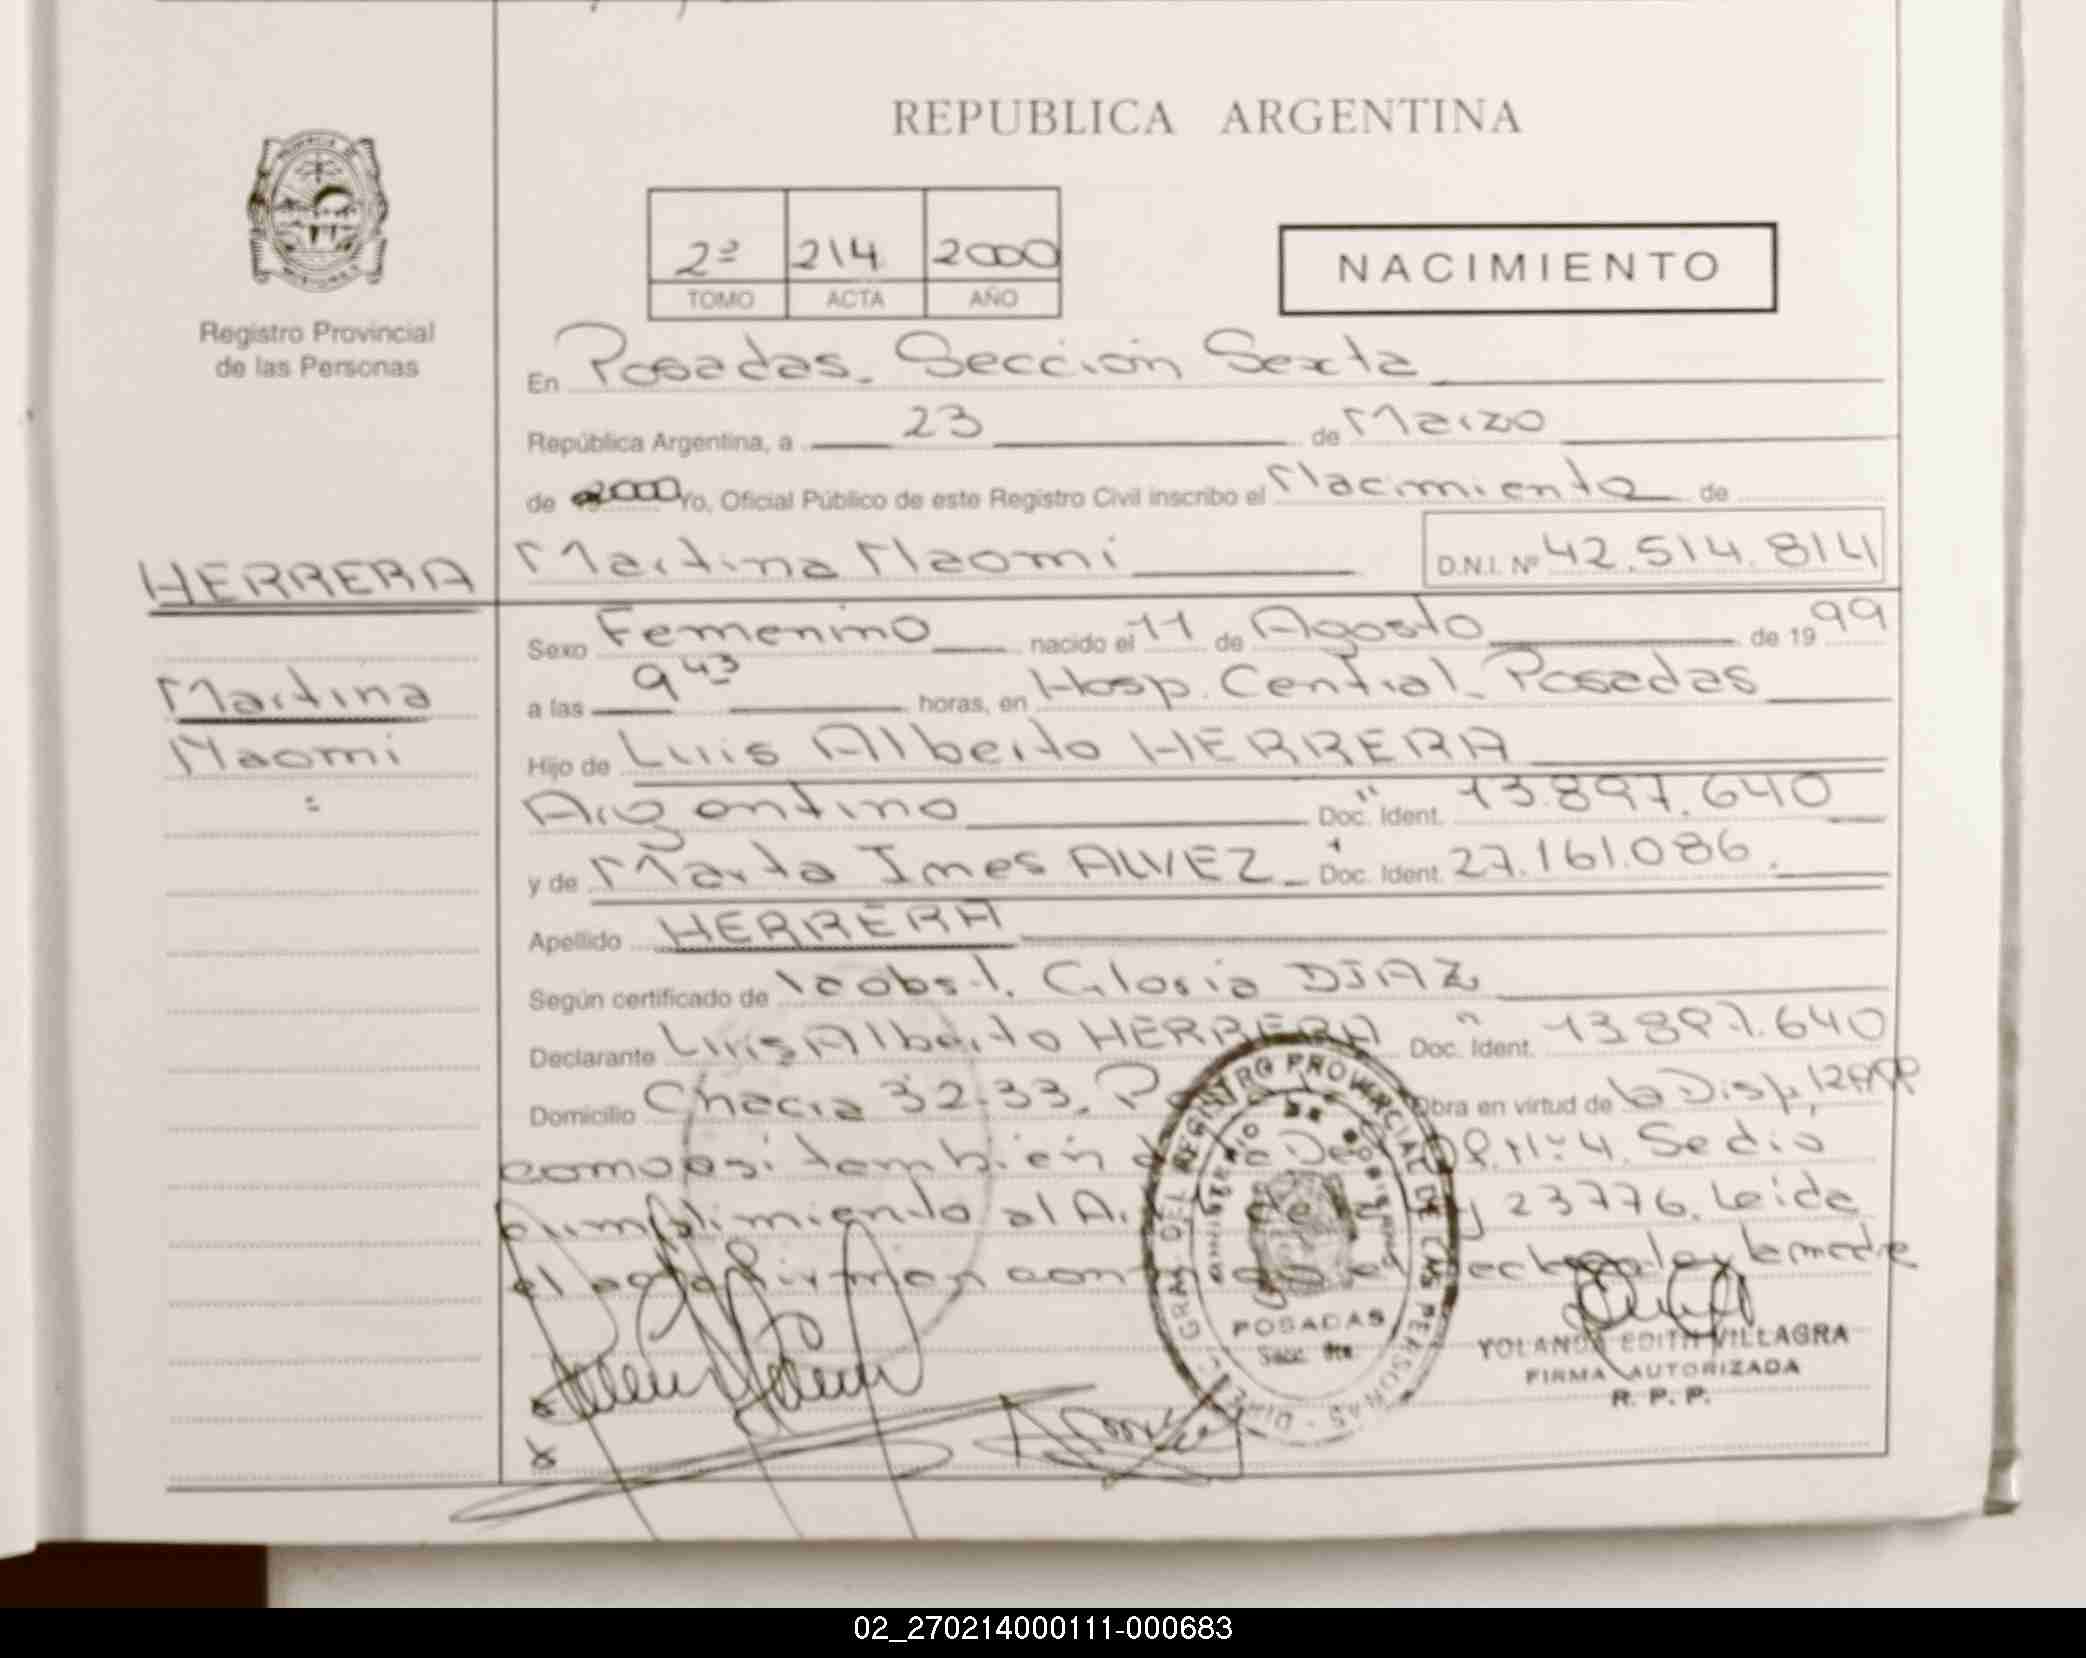 REPUBLICA ARGENTINA
2ª 214 2000
TOMO ACTA AÑO
NACIMIENTO
Registro Provincial
de las Personas
En Posadas. Sección Sexta
República Argentina, a 23 de Marzo
de 2000 Yo, Oficial Público de este Registro Civil inscribo el Nacimiento de
HERRERA Martina Naomi D.N.I. Nº 42.514.814
Sexo Femenino nacido el 11 de Agosto de 1999
Martina
a las 9 43 horas, en Hosp. Central. Posadas
Naomi
Hijo de Luis Alberto HERRERA
Argentino Doc. Ident. 13.897.640
y de Marta Ines ALVEZ Doc. Ident. 27.161.086.
Apellido HERRERA
Según certificado de la obst. Gloria DIAZ
Declarante Luis Alberto HERRERA Doc. Ident. 13.897.640
Domicilio Chacra 32-33. Obra en virtud de la Disp.
como asi también Nº 4. Se dio
cumplimiento al A. 23776. Leida
el acta firman con la madre
DIREC. GRAL. DEL REGISTRO PROVINCIAL DE LAS PERSONAS
POSADAS
YOLANDA EDITH VILLAGRA
FIRMA AUTORIZADA
R. P. P.
02_270214000111-000683